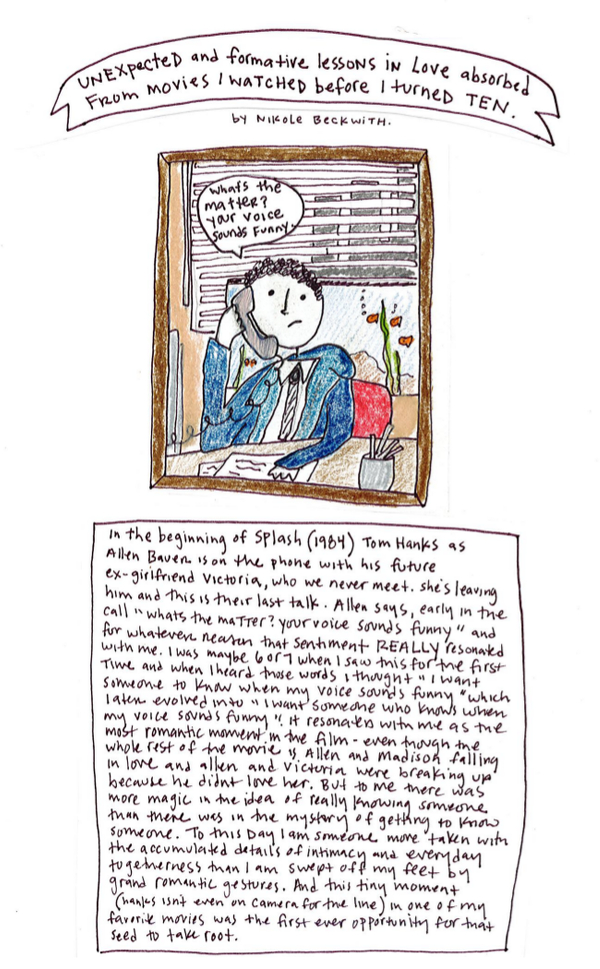 UNEXpectED and formative lessons in Love absorbed
From movies I WATCHED before I turned TEN.
by Nikole Beckwith.
Whats the
matter?
your voice
sounds funny.
In the beginning of Splash (1984) Tom Hanks as
Allen Bauer is on the phone with his future
ex-girlfriend Victoria, who we never meet. She's leaving
him and this is their last talk. Allen says, early in the
call "whats the matter? your voice sounds funny" and
for whatever reason that sentiment REALLY resonated
with me. I was maybe 6 or 7 when I saw this for the first
time and when I heard those words I thought "I want
someone to know when my voice sounds funny" which
later evolved into "I want someone who knows when
my voice sounds funny". it resonates with me as the
most romantic moment in the film - even though the
whole rest of the movie is Allen and Madison falling
in love and allen and Victoria were breaking up
because he didnt love her. But to me there was
more magic in the idea of really knowing someone
than there was in the mystery of getting to know
someone. To this Day I am someone more taken with
the accumulated details of intimacy and everyday
togetherness than I am swept off my feet by
grand romantic gestures. And this tiny moment
(hanks isnt even on camera for the line) in one of my
favorite movies was the first ever opportunity for that
seed to take root.